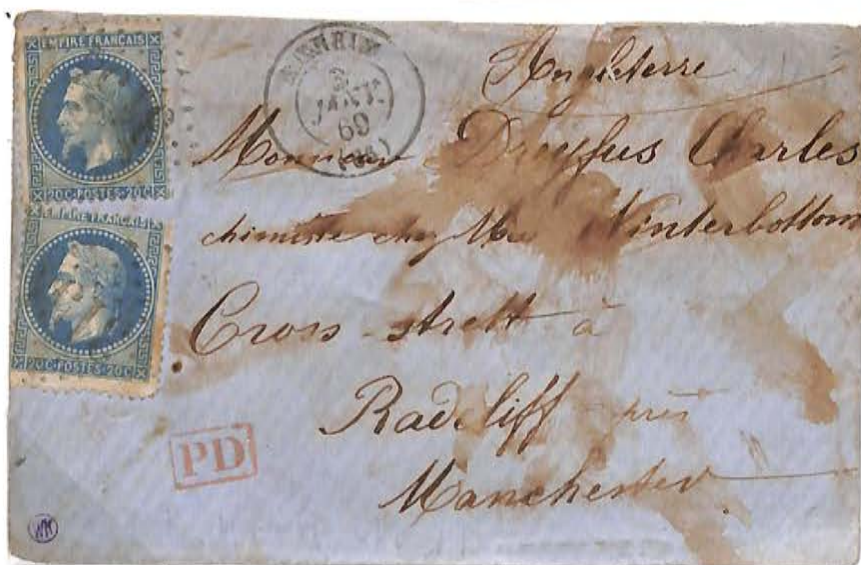 EMPIRE FRANÇAIS
20C·POSTES·20C
EMPIRE FRANÇAIS
20C·POSTES·20C
3
JANV.
69
Angleterre
Monsieur Dreyfus Charles
chimiste chez Winterbottom
Cross-strett à
Radcliff près
Manchester
PD